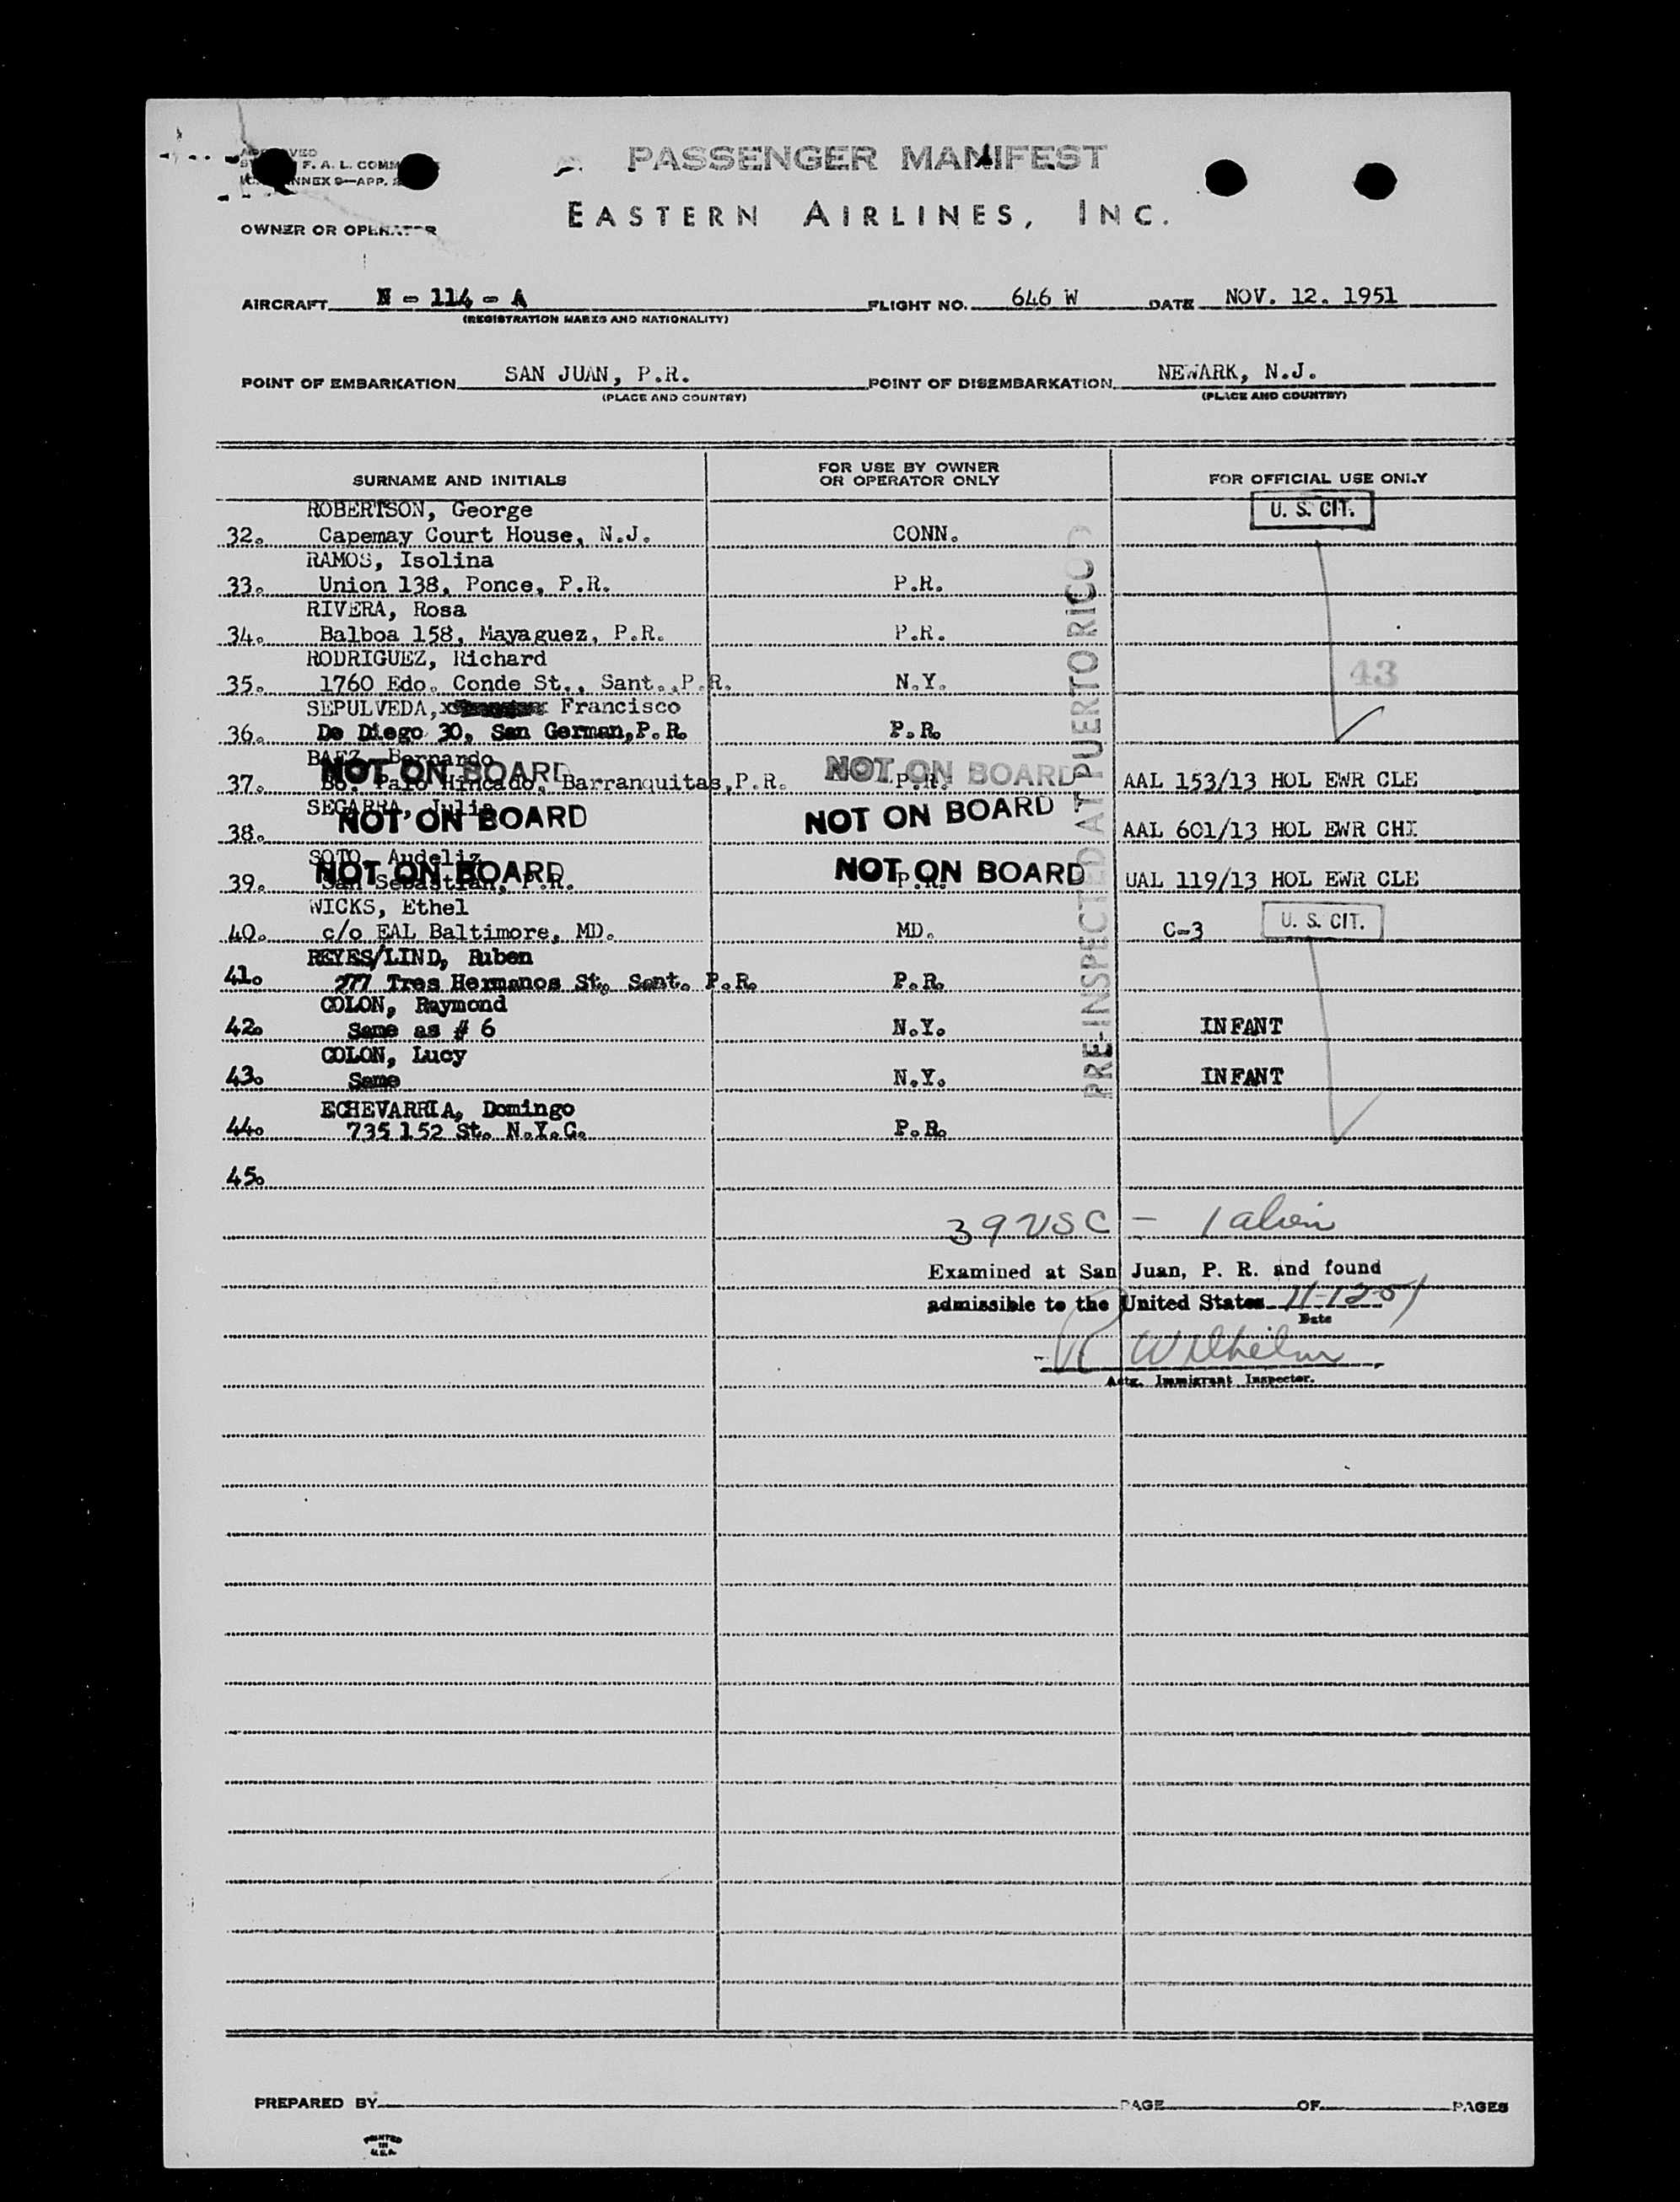 PASSENGER MANIFEST
F. A. L. COMM
ANNEX 9—APP.
EASTERN AIRLINES, INC.
OWNER OR OPERATOR
AIRCRAFT N - 114 - A FLIGHT NO. 646 W DATE NOV. 12. 1951
(REGISTRATION MARKS AND NATIONALITY)
POINT OF EMBARKATION SAN JUAN, P.R. POINT OF DISEMBARKATION NEWARK, N.J.
(PLACE AND COUNTRY) (PLACE AND COUNTRY)
SURNAME AND INITIALS FOR USE BY OWNER OR OPERATOR ONLY FOR OFFICIAL USE ONLY
ROBERTSON, George U. S. CIT.
32. Capemay Court House, N.J. CONN.
RAMOS, Isolina
33. Union 138, Ponce, P.R. P.R.
RIVERA, Rosa
34. Balboa 158, Mayaguez, P.R. P.R.
RODRIGUEZ, Richard
35. 1760 Edo. Conde St., Sant.,P.R. N.Y. 43
SEPULVEDA, Francisco
36. De Diego 30, San German,P.R. P.R.
BAEZ, Bernardo
NOT ON BOARD NOT ON BOARD
37. Bo. Palo Hincado, Barranquitas,P.R. P.R. AAL 153/13 HOL EWR CLE
SEGARRA, Julia
NOT ON BOARD NOT ON BOARD
38. AAL 601/13 HOL EWR CHI
SOTO, Audeliz
NOT ON BOARD NOT ON BOARD
39. San Sebastian, P.R. P.R. UAL 119/13 HOL EWR CLE
WICKS, Ethel U. S. CIT.
40. c/o EAL Baltimore, MD. MD. C-3
REYES/LIND, Ruben
41. 277 Tres Hermanos St. Sant. P.R. P.R.
COLON, Raymond
42. Same as # 6 N.Y. INFANT
COLON, Lucy
43. Same N.Y. INFANT
ECHEVARRIA, Domingo
44. 735 152 St. N.Y.C. P.R.
45.
PRE-INSPECTED AT PUERTO RICO
39 USC - 1 alien
Examined at San Juan, P. R. and found
admissible to the United States 11-12-51
Date
R Wilhelm
Actg. Immigrant Inspector.
PREPARED BY PAGE OF PAGES
PRINTED
IN
U.S.A.